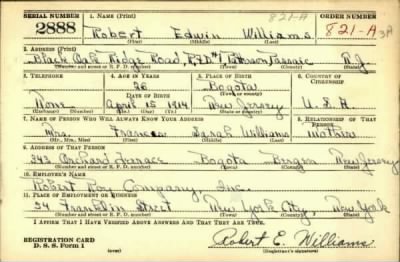 SERIAL NUMBER 1. NAME (Print) 821-A ORDER NUMBER
2888 Robert Edwin Williams 821-A
(First) (Middle) (Last)
2. ADDRESS (Print)
Black Oak Ridge Road, R.F.D. #1 Paterson Passaic N.J.
(Number and street or R. F. D. number) (Town) (County) (State)
3. TELEPHONE 4. AGE IN YEARS 5. PLACE OF BIRTH 6. COUNTRY OF CITIZENSHIP
26 Bogota
DATE OF BIRTH
None April 15 1914 New Jersey U.S.A
(Exchange) (Number) (Mo.) (Day) (Yr.) (State or country)
7. NAME OF PERSON WHO WILL ALWAYS KNOW YOUR ADDRESS 8. RELATIONSHIP OF THAT PERSON
Mrs. Frances Sarah Williams Mother
(Mr., Mrs., Miss) (First) (Middle) (Last)
9. ADDRESS OF THAT PERSON
243 Orchard Terrace Bogota Bergen New Jersey
(Number and street or R. F. D. number) (Town) (County) (State)
10. EMPLOYER'S NAME
Robert Company, Inc.
11. PLACE OF EMPLOYMENT OR BUSINESS
54 Franklin Street New York City, New York
(Number and street or R. F. D. number) (Town) (County) (State)
I AFFIRM THAT I HAVE VERIFIED ABOVE ANSWERS AND THAT THEY ARE TRUE.
REGISTRATION CARD
D. S. S. Form 1 Robert E. Williams
(over) (Registrant's signature)